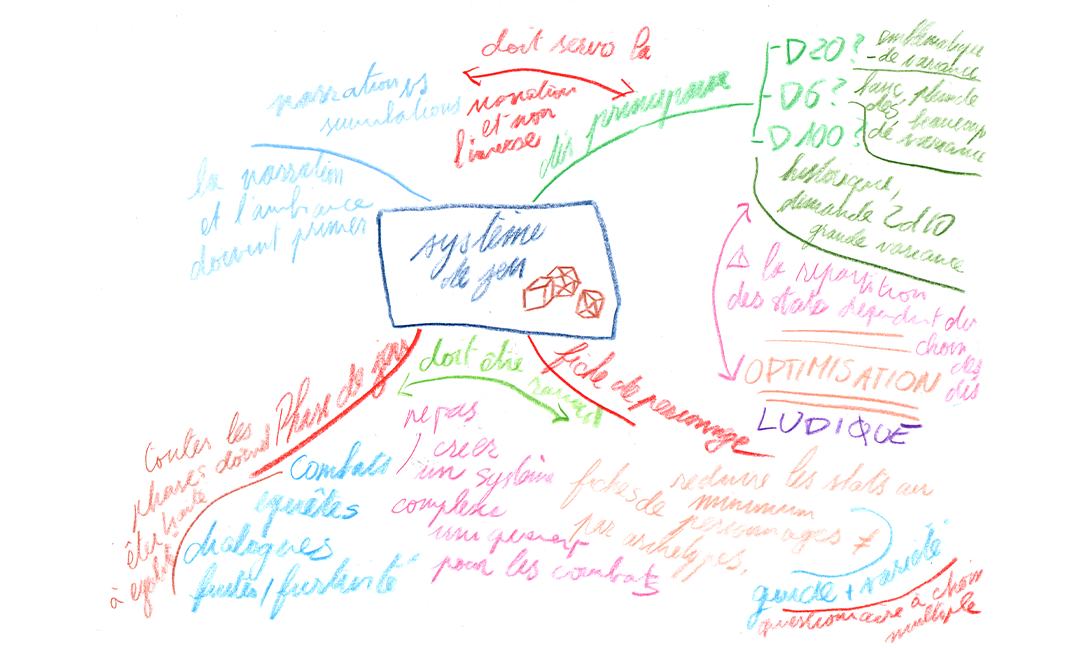 système
de jeu
narration vs
simulations
la narration
et l'ambiance
doivent primer
doit servir la
narration
et non
l'inverse
dés principaux
-D20?
emblématique
- de variance
-D6?
-D100?
beaucoup
de variance
historique,
demande 2d10
grande variance
⚠ la répartition
des stats dépendent du
choix
des
dés
OPTIMISATION
LUDIQUE
fiche de personnage
réduire les stats au
minimum
fiches de personnages ≠
par archétypes.
guide + variété
questionnaire à choix
multiple
doit être
Phase de jeu
toutes les
phases doivent
être traité
à égalité
combats
enquêtes
dialogues
fuites / furtivité
pas
créer
un système
complexe
uniquement
pour les combats